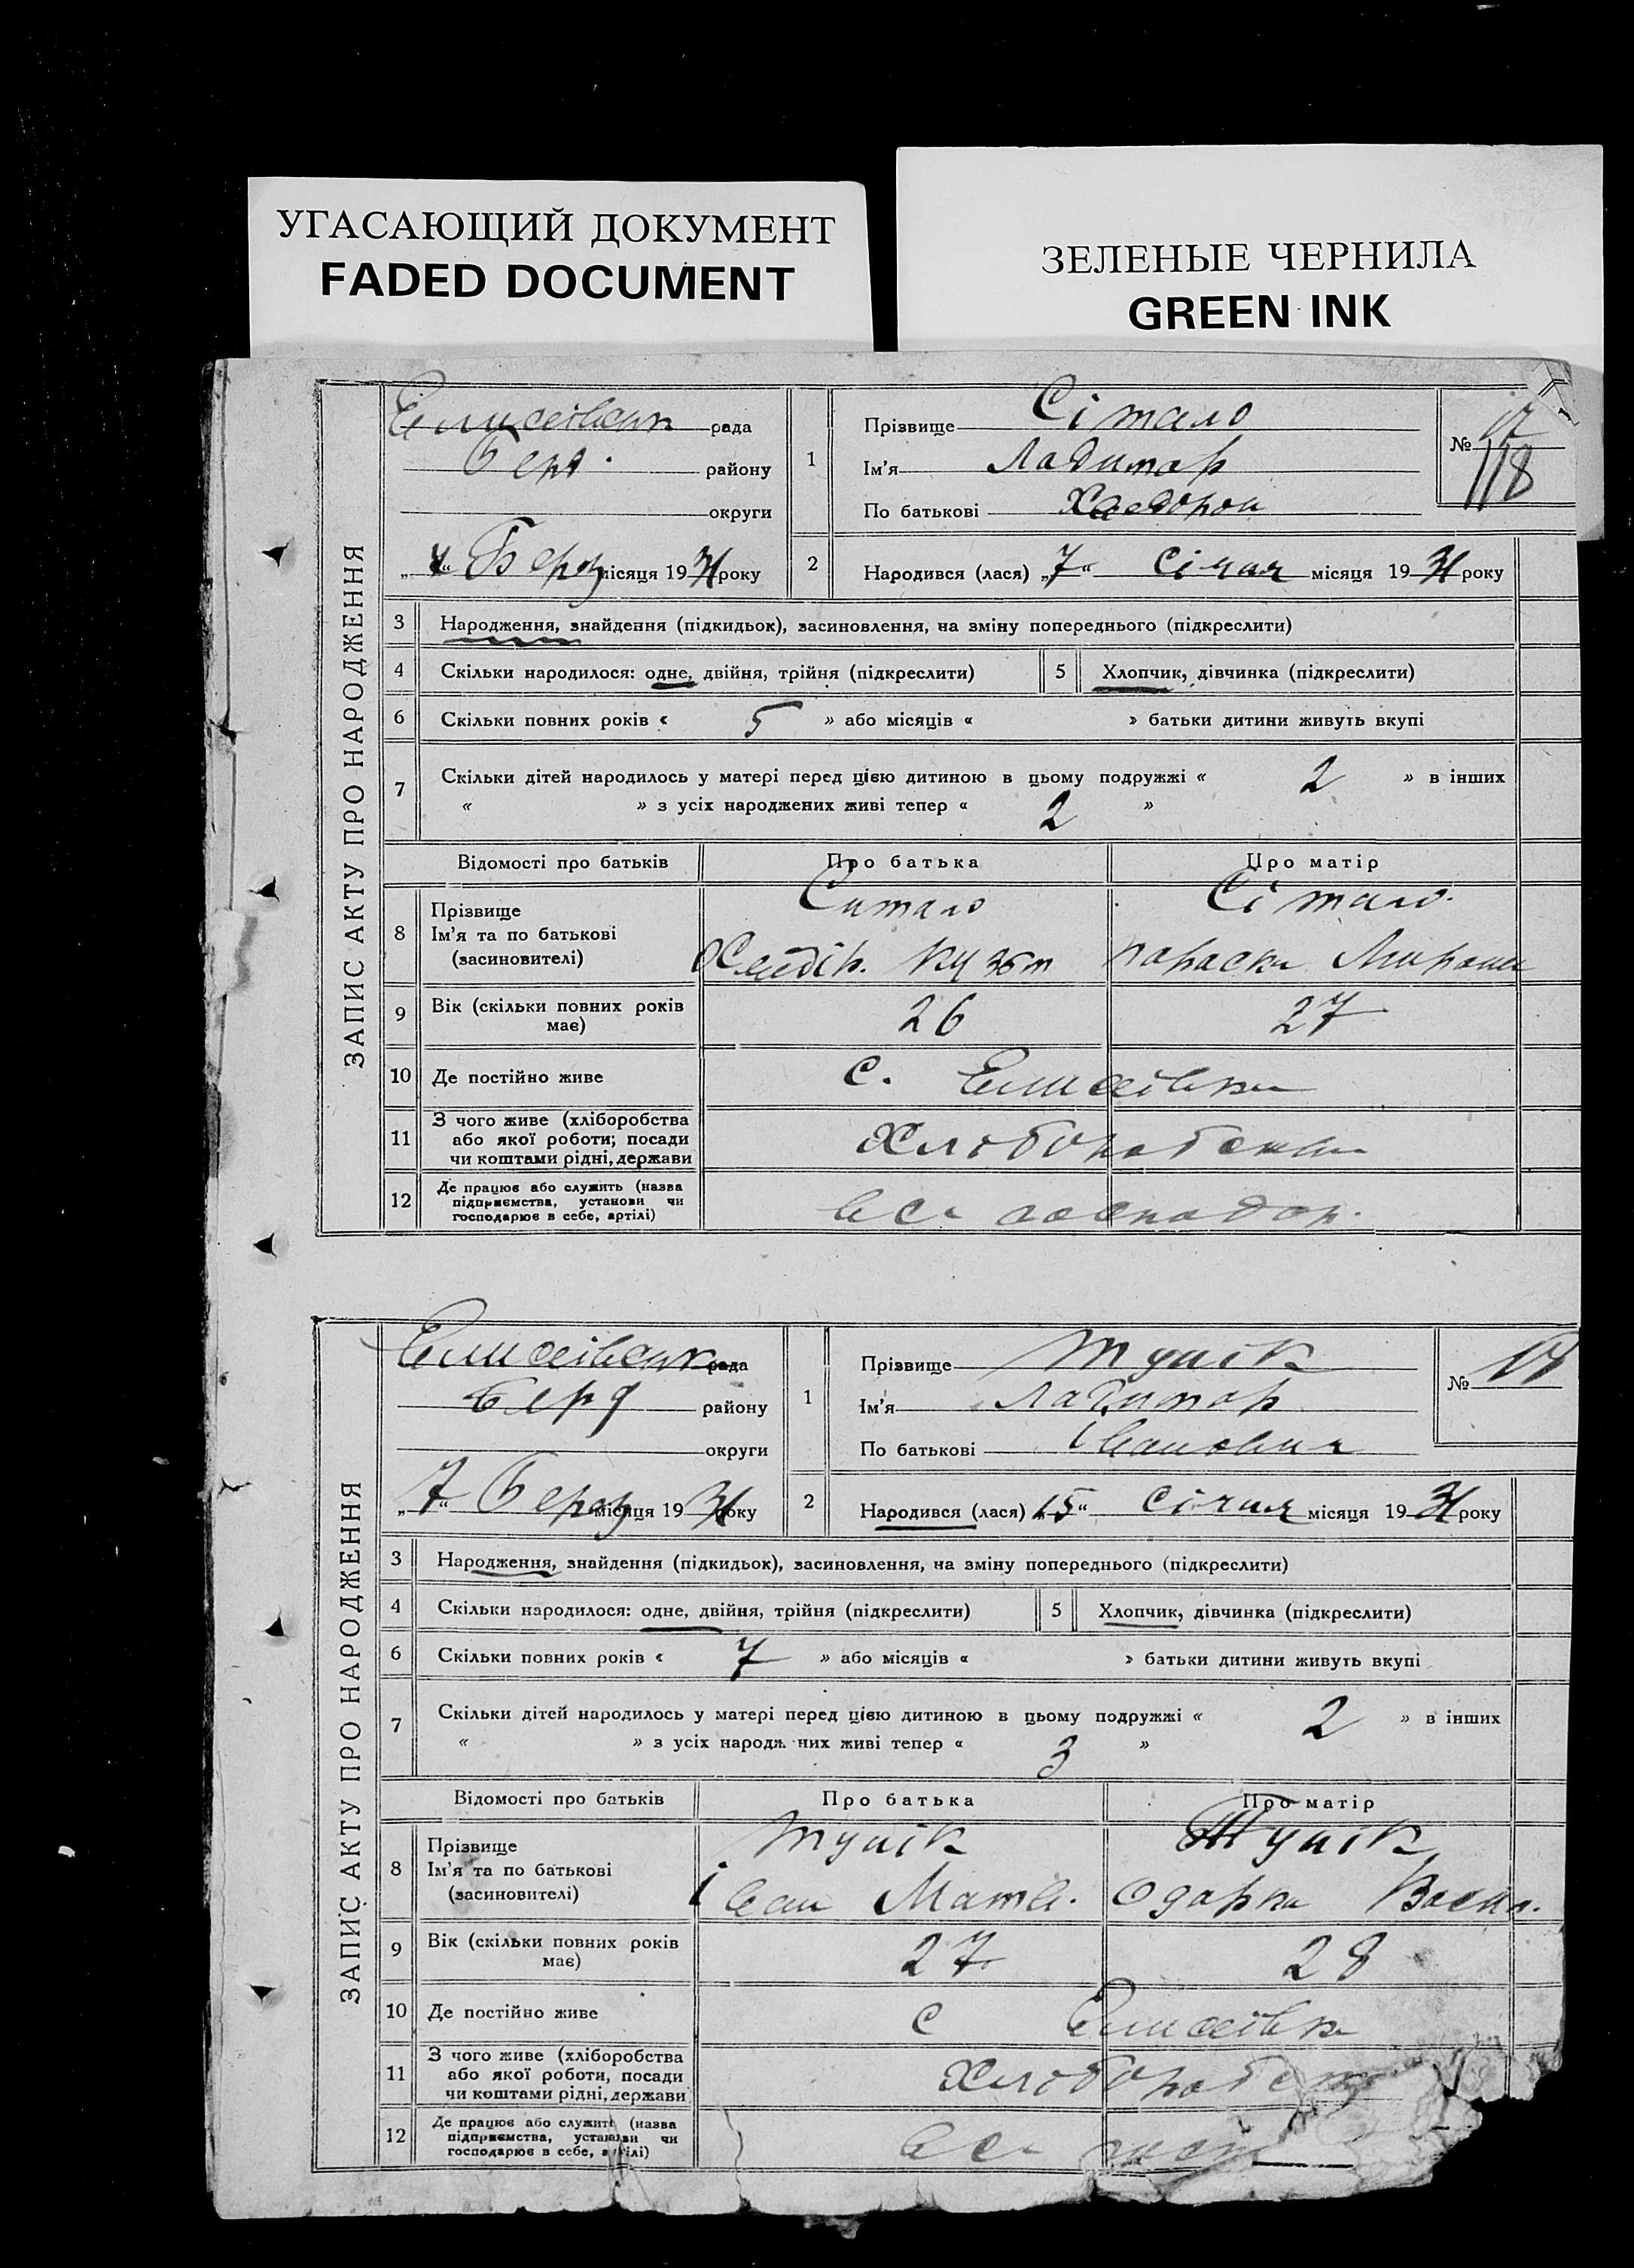 УГАСАЮЩИЙ ДОКУМЕНТ
FADED DOCUMENT
ЗЕЛЕНЫЕ ЧЕРНИЛА
GREEN INK
ЗАПИС АКТУ ПРО НАРОДЖЕННЯ
рада
Берд. району
округи
„ “ Берез місяця 1931 року
1
Прізвище Сітало
Ім'я Ладимар
По батькові
№ 118
2
Народився (лася) „7“ Січня місяця 1931 року
3 Народження, знайдення (підкидьок), засиновлення, на зміну попереднього (підкреслити)
4 Скільки народилося: одне, двійня, трійня (підкреслити) 5 Хлопчик, дівчинка (підкреслити)
6 Скільки повних років « 5 » або місяців « » батьки дитини живуть вкупі
7 Скільки дітей народилось у матері перед цією дитиною в цьому подружжі « 2 » в інших
« » з усіх народжених живі тепер « 2 »
Відомості про батьків Про батька Про матір
8 Прізвище Ситало Сітало
Ім'я та по батькові
(засновителі) Параска
9 Вік (скільки повних років має) 26 27
10 Де постійно живе с. Елисеівка
11 З чого живе (хліборобства
або якої роботи; посади
чи коштами рідні, держави
12 Де працює або служить (назва
підприємства, установи чи
господарює в себе, артілі)
ЗАПИС АКТУ ПРО НАРОДЖЕННЯ
рада
Берд району
округи
„7“ Берез місяця 1931 року
1
Прізвище Тупік
Ім'я Ладимар
По батькові Іванович
№
2
Народився (лася) „15“ Січня місяця 1931 року
3 Народження, знайдення (підкидьок), засиновлення, на зміну попереднього (підкреслити)
4 Скільки народилося: одне, двійня, трійня (підкреслити) 5 Хлопчик, дівчинка (підкреслити)
6 Скільки повних років « 7 » або місяців « » батьки дитини живуть вкупі
7 Скільки дітей народилось у матері перед цією дитиною в цьому подружжі « 2 » в інших
« » з усіх народж них живі тепер « 3 »
Відомості про батьків Про батька Про матір
8 Прізвище Тупік Тупік
Ім'я та по батькові
(засиновителі) Іван Матв. Одарка Васил.
9 Вік (скільки повних років має) 27 28
10 Де постійно живе с Елисеівка
11 З чого живе (хліборобства
або якої роботи, посади
чи коштами рідні, держави
12 Де працює або служить (назва
підприємства, установи чи
господарює в себе, артілі)